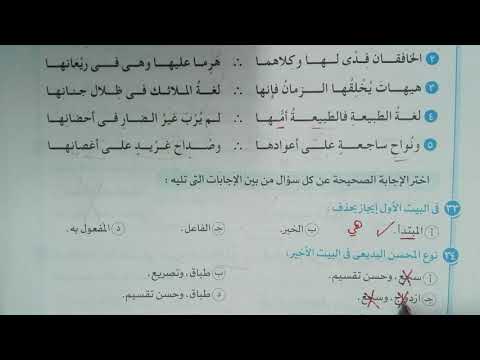 ٢ الخافقان فدى لها وكلاهما ∴ هَرِما عليها وهى فى ريْعانها
٣ هيهاتَ يُخْلِقُها الزمانُ فإنها ∴ لغةُ الملائك فى ظِلال جنانها
٤ لغةُ الطبيعةِ فالطبيعةُ أمُّها ∴ لم يُرْبَ غيرُ الضادِ فى أحضانها
٥ ونُواحِ ساجعةٍ على أعوادها ∴ وصُداح غرِّيدٍ على أغصانها
اختر الإجابة الصحيحة عن كل سؤال من بين الإجابات التى تليه :
٢٣ فى البيت الأول إيجاز بحذف :
أ المبتدأ. هي ب الخبر. جـ الفاعل. د المفعول به.
٢٤ نوع المحسن البديعى فى البيت الأخير:
أ سجع، وحسن تقسيم. ب طباق، وتصريع.
جـ ازدواج، وسجع. د طباق، وحسن تقسيم.